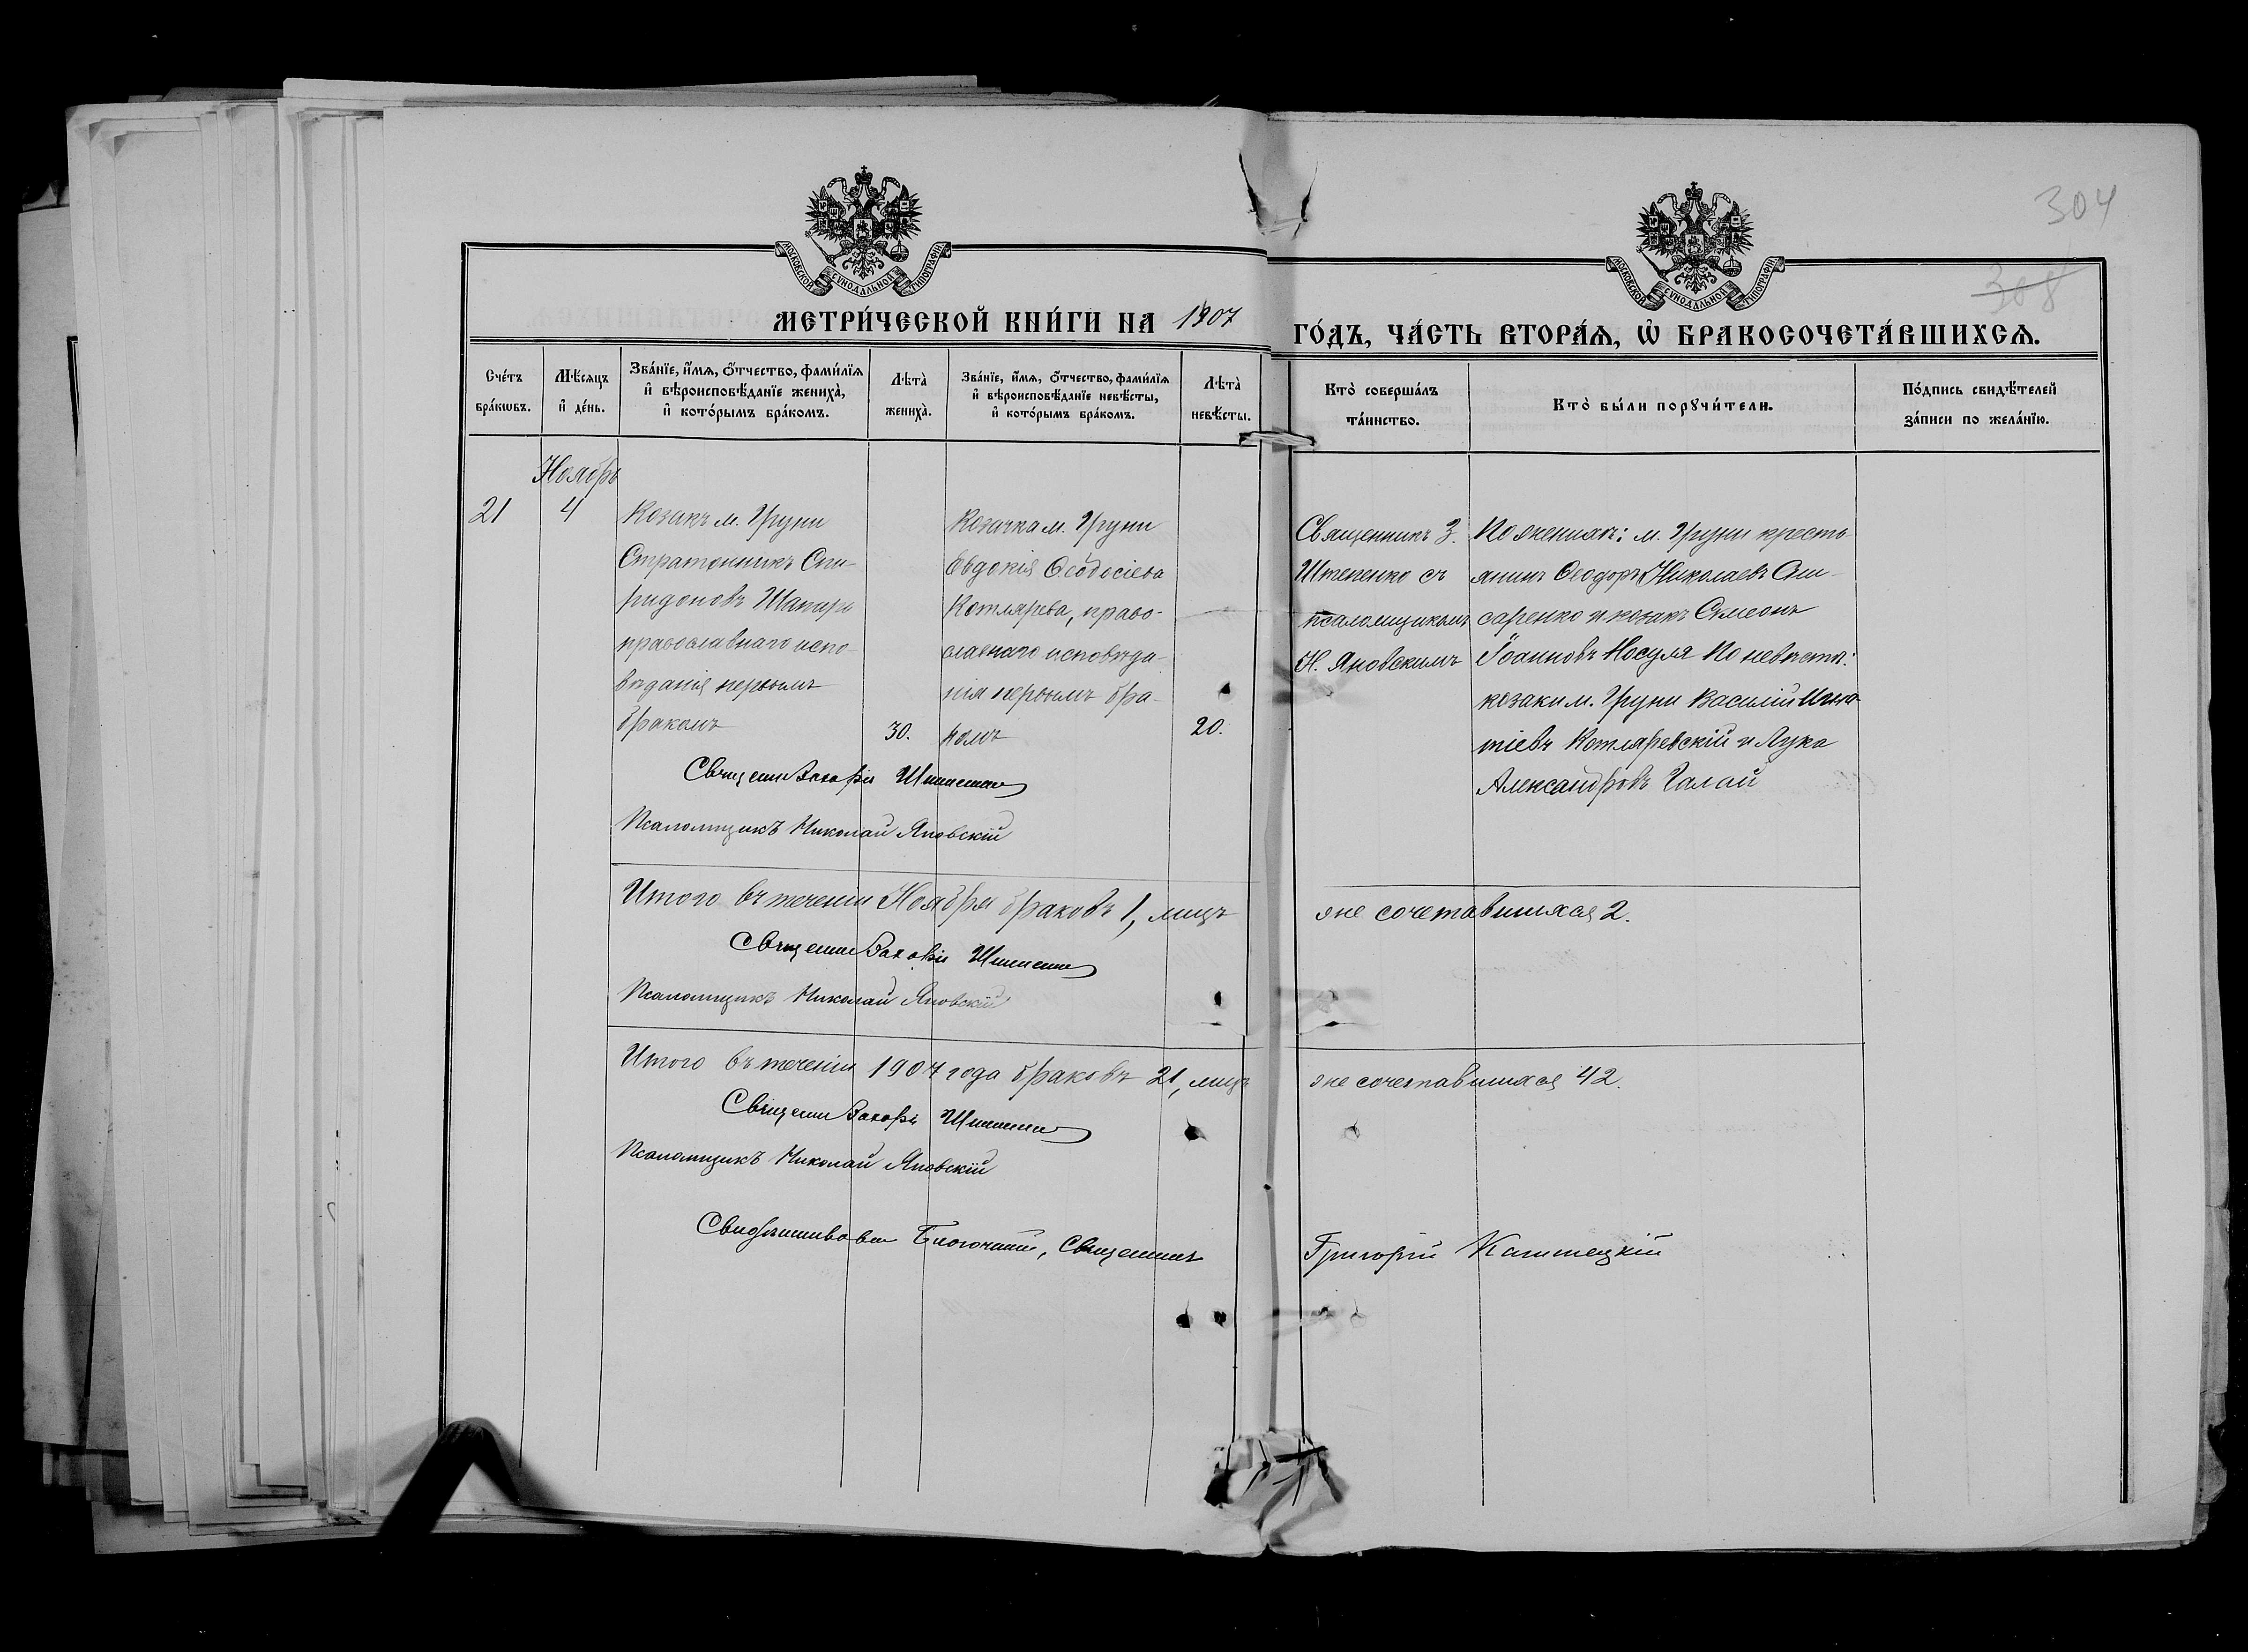 304
308
МОСКОВСКОЙ СѴНОДАЛЬНОЙ ТИПОГРАФІИ
МОСКОВСКОЙ СѴНОДАЛЬНОЙ ТИПОГРАФІИ
МЕТРИ́ЧЕСКОЙ КНИ́ГИ НА 1907
ГО́ДЪ, ЧА́СТЬ ВТОРА́Ѧ, Ѡ҆ БРАКОСОЧЕТА́ВШИХСѦ.
Сче́тъ бра́кѡвъ.
Мѣ́сяцъ и҆ де́нь.
Зва́нїе, и҆́мѧ, ѻ҆́тчество, фами́лїѧ и҆ вѣроисповѣ́данїе жениха̀, и҆ кото́рымъ бра́комъ.
Лѣта̀ жениха̀.
Зва́нїе, и҆́мѧ, ѻ҆́тчество, фами́лїѧ и҆ вѣроисповѣ́данїе невѣ́сты, и҆ кото́рымъ бра́комъ.
Лѣта̀ невѣ́сты.
Кто̀ соверша́лъ та́инство.
Кто̀ бы́ли порꙋчи́тели.
По́дпись свидѣ́телей за́писи по жела́нїю.
Ноябрь
21
4
Козакъ м. Груни
Стратоникъ Спи-
ридоновъ Шапиро
православнаго испо-
вѣданія первымъ
бракомъ
30.
Козачка м. Груни
Евдокія Ѳеодосіева
Котлярева, право-
славнаго исповѣда-
нія первымъ бра-
комъ
20.
Священникъ З.
Штепенко съ
псаломщикомъ
Н. Яновскимъ
По женихѣ: м. Груни кресть-
янинъ Ѳеодоръ Николаевъ Сли-
саренко и козакъ Симеонъ
Іоанновъ Носуля По невѣстѣ:
козаки м. Груни Василій Игна-
тіевъ Котляревскій и Лука
Александровъ Галай
Священ Захарія Штепенко
Псаломщикъ Николай Яновскій
Итого въ теченіи Ноября браковъ 1, лицъ
же сочетавшихся 2.
Священ Захарія Штепенко
Псаломщикъ Николай Яновскій
Итого въ теченіи 1907 года браковъ 21, лицъ
же сочетавшихся 42.
Священ Захарія Штепенко
Псаломщикъ Николай Яновскій
Свидѣтельствовалъ Благочинный, Священникъ
Григорій